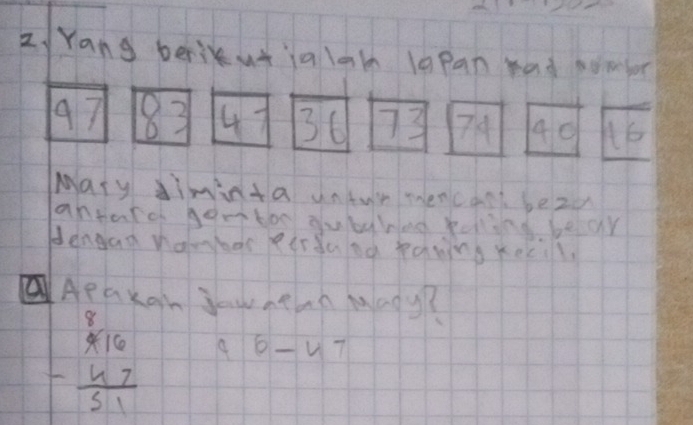 2. Yang berikut ialah lapan kad nombor
97 83 47 36 73 79 40 16
Mary diminta untuk mencari beza
antara nombor paling besar
dengan nombor perdana paling kecil.
a Apakah jawapan Mary?
8
9 16 9 6 - 47
- 47
51